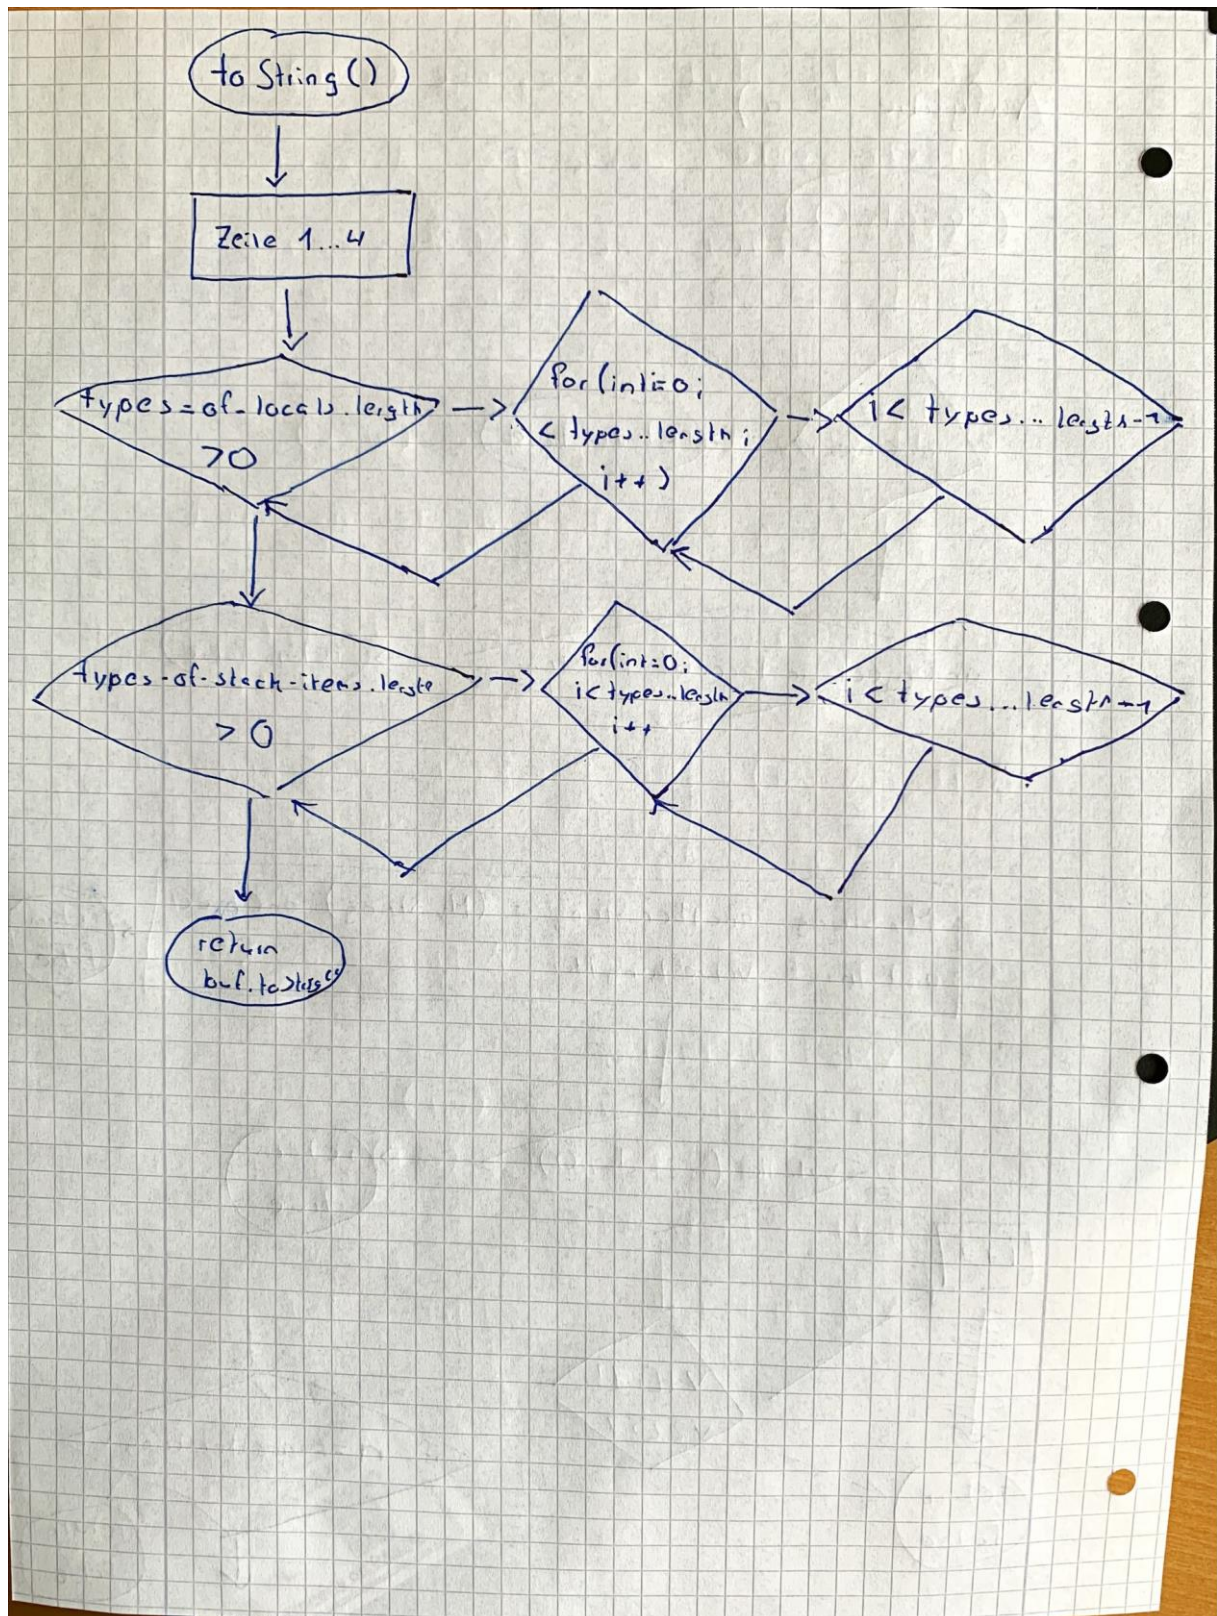 toString()
Zeile 1...4
types=of-locals.length
>0
for(int i=0;
< types..length;
i++)
i< types...length-1
types-of-stack-items.length
>0
for(int=0;
i<types..length
i++
i< types...length-1
return
buf.toString()